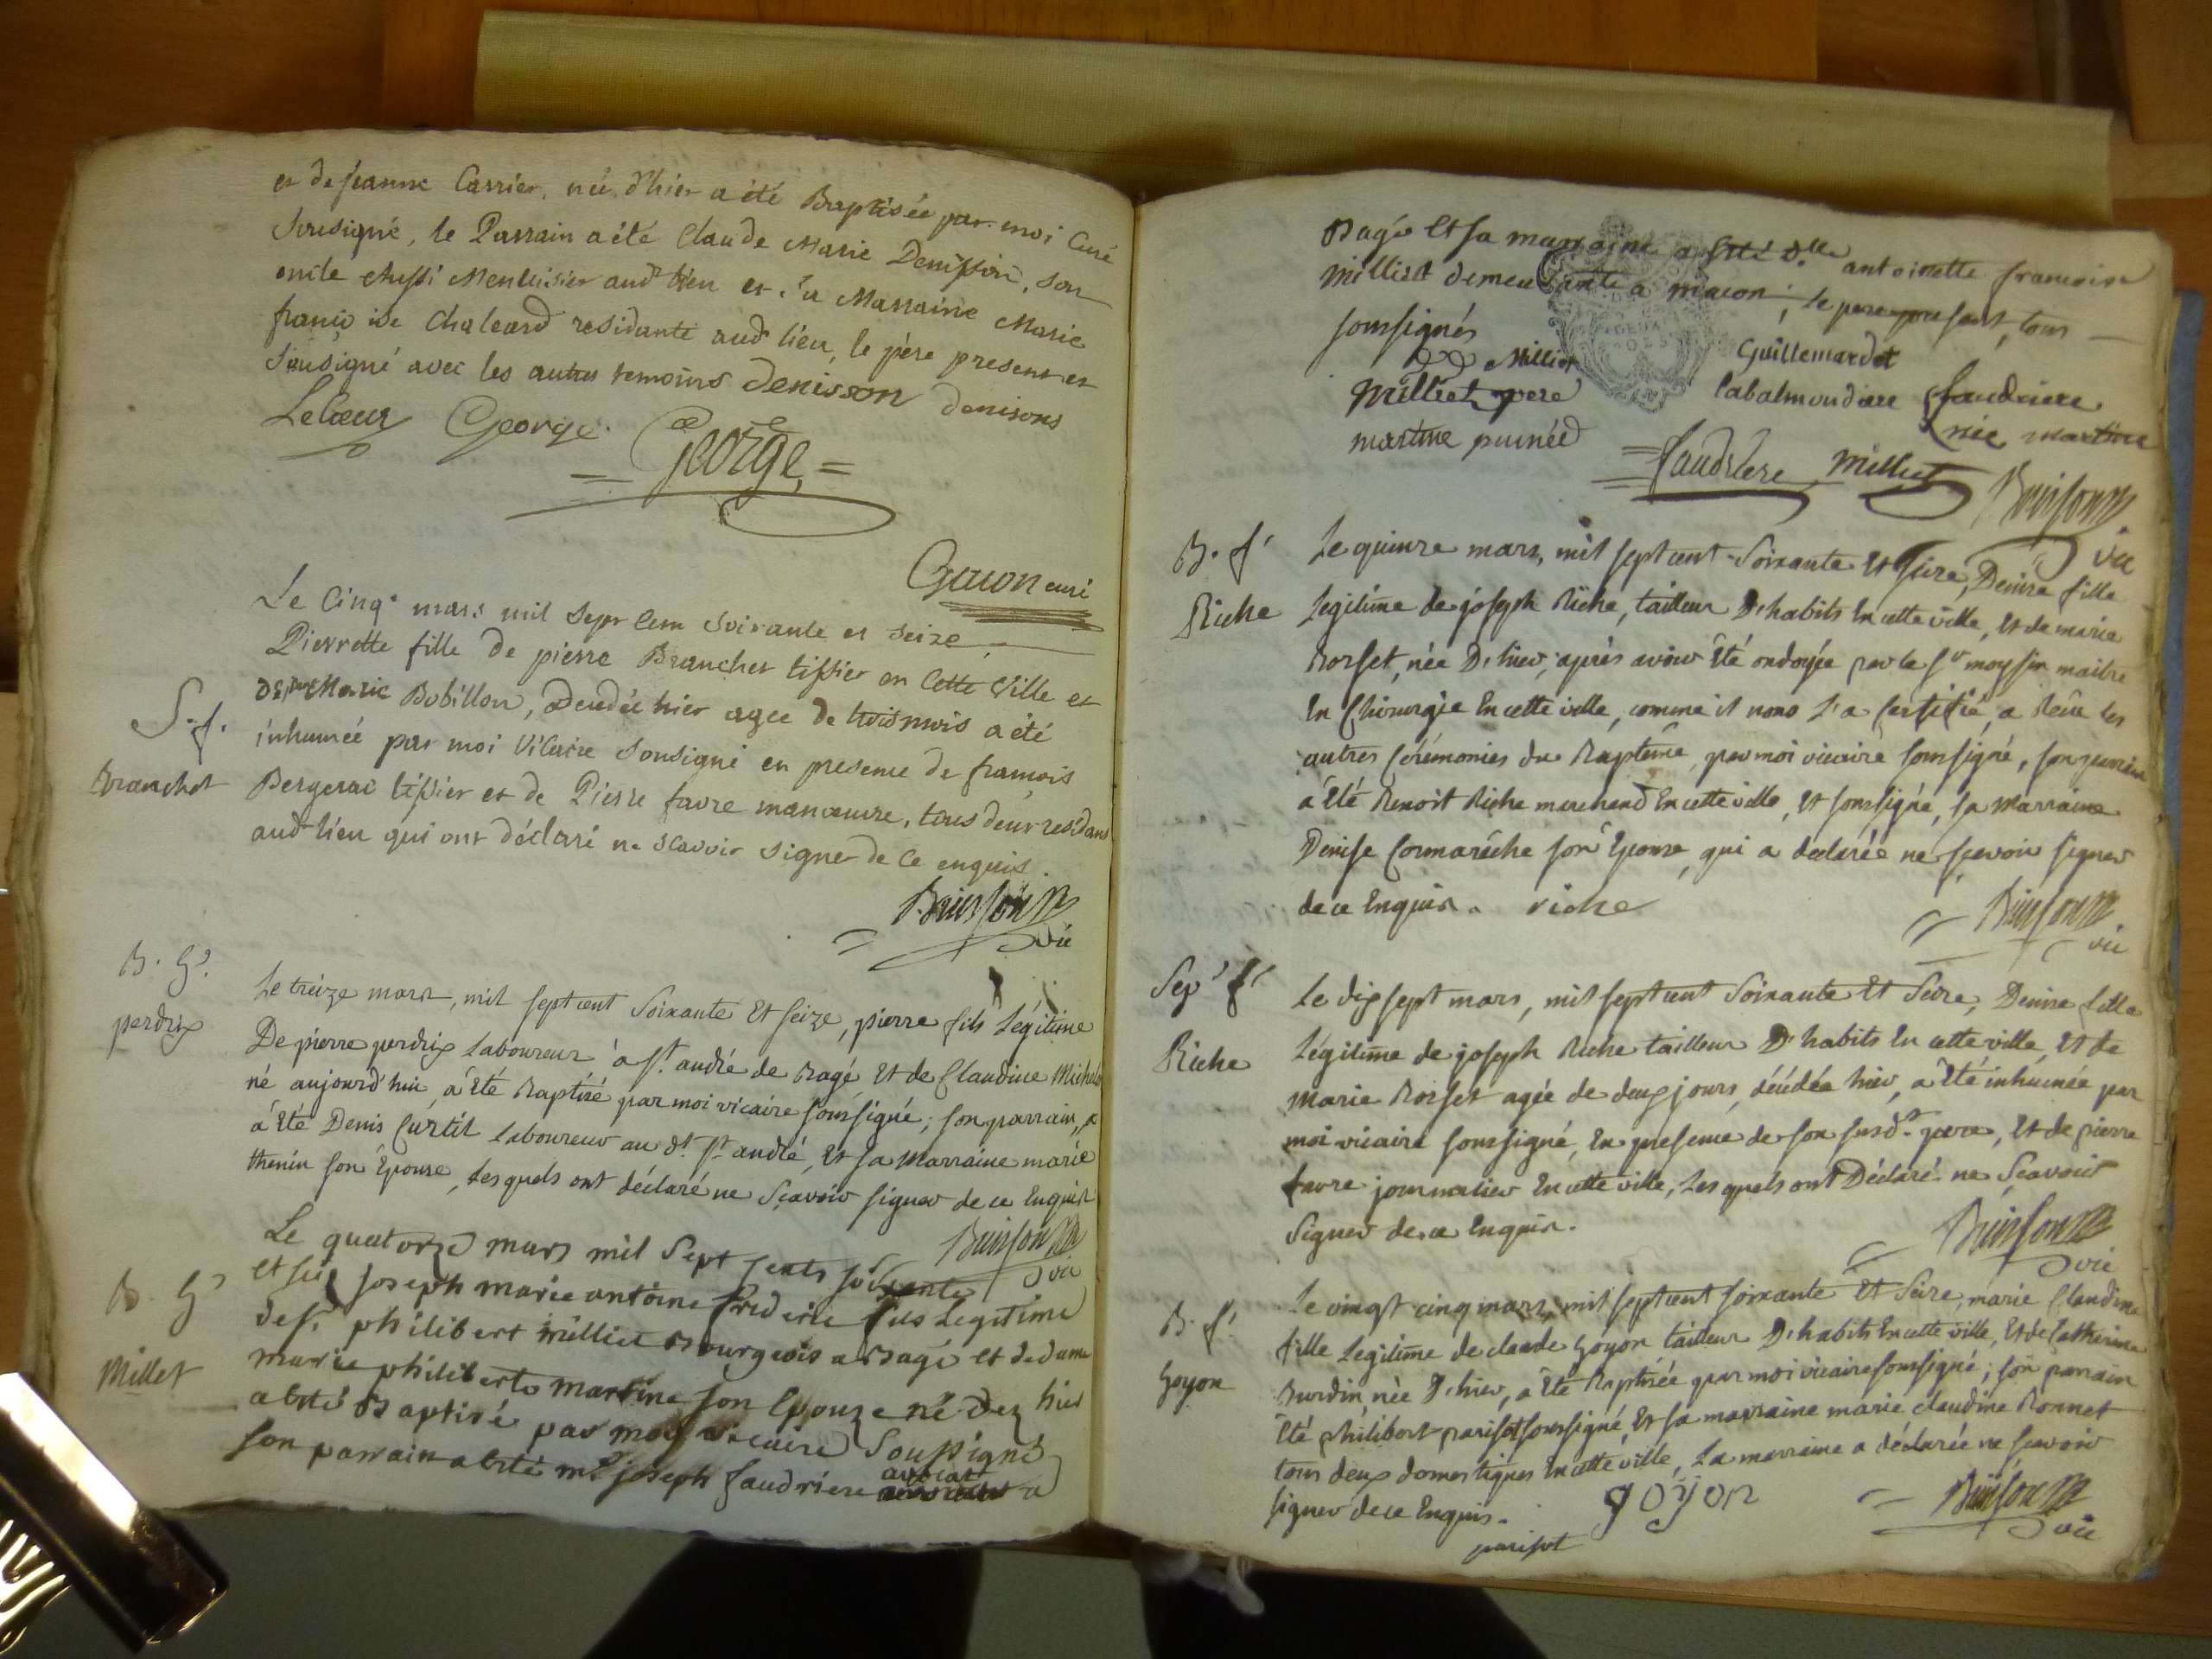 et de jeanne Carrier, née d'hier a été Baptisée par moi Curé
Sousigné, le Parrain a été Claude Marie Denisson, son
oncle Aussi Menuisier aud^t lieu et Sa Marraine Marie
françoise Chaleard residante aud^t lieu, le père present et
Sousigné avec les autres temoins Denisson denisons
LeCœur George
George
curé
Le Cinq^e mars mil Sept Cem Soixante et Seize
Pierrette fille de pierre Branchet tissier en Cette Ville et
Marie Bobillon, Decedée hier agee de trois mois a été
S. f.
inhumée par moi Vicaire Sousigné en presence de françois
Branchet
Bergerac tissier et de Pierre favre manœuvre, tous deux residans
aud^t lieu qui ont déclaré ne scavoir signer de ce enquis.
Buisson
vic
B. G^s.
perdrix
Le treize mars, mil sept cent Soixante Et seize, pierre fils Légitime
De pierre perdrix Laboureur à S^t. andré de Bagé Et de Claudine Michel
né aujourd'hui, a Eté Baptisé par moi vicaire soussigné; son parrain, a
a Eté Denis Curtil Laboureur au d^t. S^t. andré, Et sa Marraine marie
thenin son Epouse, Lesquels ont déclaré ne Sçavoir signer de ce Enquis
Buisson
vic
Le quatorze mars mil Sept Cents soixante
B. G^s
et seize joseph marie antoine frederic fils Legitime
de S^r. philibert milliet Bourgeois a Bagé et de dame
Millet
marie philiberte martine son Epouze né hier
a Eté Baptisé par moy vicaire Soussigné
son parrain a Eté m^e joseph faudriere avocat a
Bagé Et sa marraine a Eté d^elle antoinette francoise
Milliet demeurante a macon; le pere present, tous
soussignés
Milliet
Guillemardet
Milliet pere
Labalmondiere faudriere
née martine
martine puinée
faudriere Milliet
Buisson
vic
B. f^e
Riche
Le quinze mars, mil sept cent Soixante Et Seize, Denise fille
Legitime de joseph Riche, tailleur D'habits En cette ville, Et de marie
Rosset, née D'hier, après avoir Eté ondoyée par le S^r moyssin maitre
En Chirurgie En cette ville, comme il nous L'a Certifié, a Reçu les
autres Cérémonies du Baptême, par moi vicaire soussigné, son parrain
a Eté Benoit Riche marchand En cette ville, Et soussigné, Sa Marraine
Denise Cormarêche son Epouse, qui a declarée ne sçavoir signer
de ce Enquis. riche
Buisson
vic
Sep^r f^e
Riche
Le dix sept mars, mil sept cent Soixante Et Seize, Denise fille
Légitime de joseph Riche tailleur D'habits En cette ville, Et de
Marie Rosset agée de deux jours, décédée hier, a Eté inhumée par
moi vicaire soussigné, En presence de son susd^t. pere, Et de pierre
favre journalier En cette ville, Lesquels ont Déclaré ne Sçavoir
Signer de ce Enquis.
Buisson
vic
B. f^e.
Goyon
Le vingt cinq mars, mil sept cent soixante Et Seize, marie Claudine
fille Legitime de claude Goyon tailleur D'habits En cette ville, Et de Catherine
Burdin, née D'hier, a Eté Baptisée par moi vicaire soussigné; son parrain
Eté philibert parisot soussigné Et sa marraine marie claudine Bonnet
tous deux domestiques En cette ville, La marraine a déclarée ne sçavoir
signer de ce Enquis.
goyon
parisot
Buisson
vic